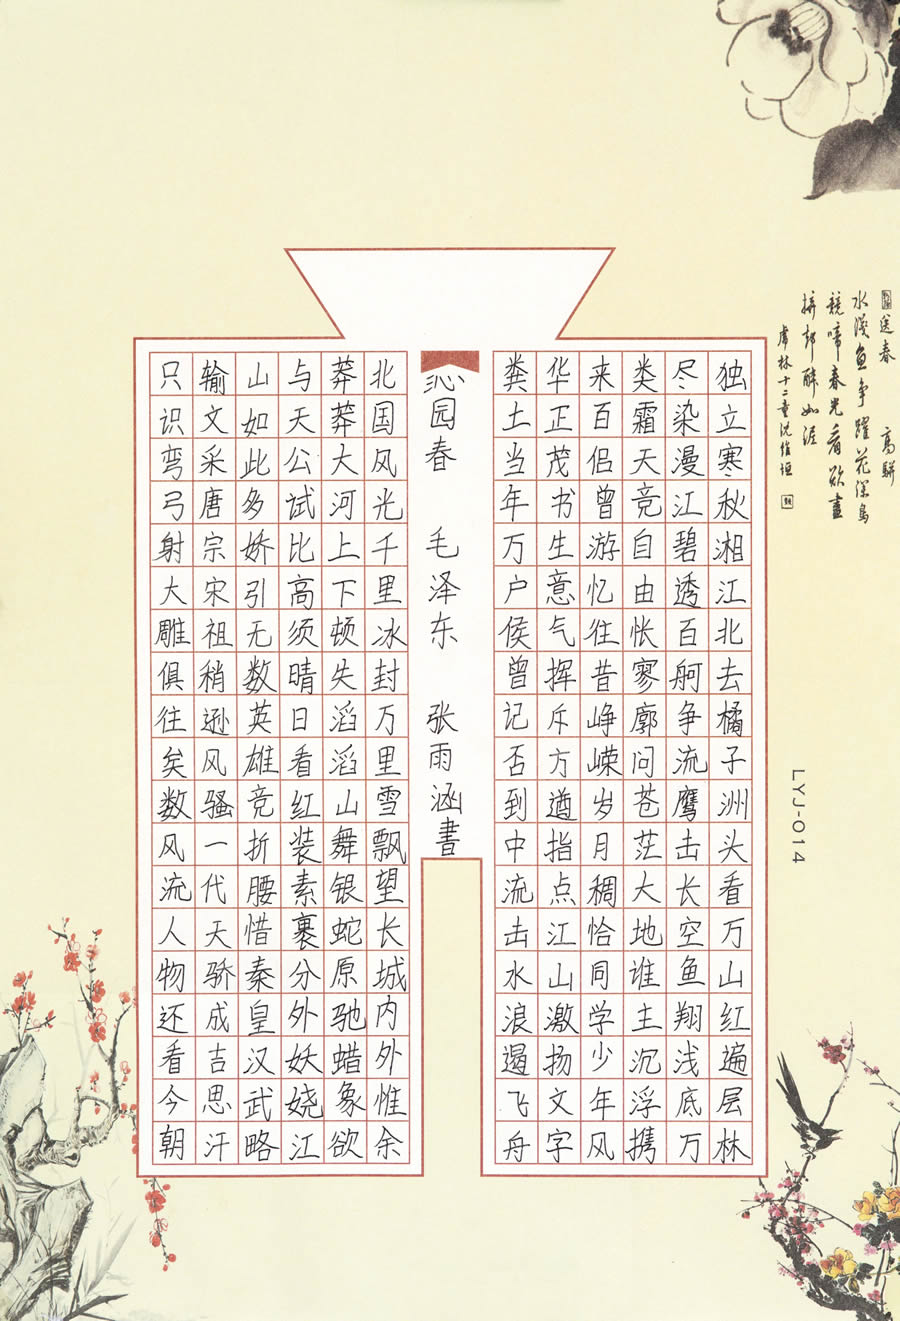 送春 高駢
水淺魚争躍花深鳥
競啼春光看欲盡
拚却醉如泥
虎林十二童沈維垣
独立寒秋湘江北去橘子洲头看万山红遍层林
尽染漫江碧透百舸争流鹰击长空鱼翔浅底万
类霜天竞自由怅寥廓问苍茫大地谁主沉浮携
来百侣曾游忆往昔峥嵘岁月稠恰同学少年风
华正茂书生意气挥斥方遒指点江山激扬文字
粪土当年万户侯曾记否到中流击水浪遏飞舟
沁园春 毛泽东 张雨涵書
北国风光千里冰封万里雪飘望长城内外惟余
莽莽大河上下顿失滔滔山舞银蛇原驰蜡象欲
与天公试比高须晴日看红装素裹分外妖娆江
山如此多娇引无数英雄竞折腰惜秦皇汉武略
输文采唐宗宋祖稍逊风骚一代天骄成吉思汗
只识弯弓射大雕俱往矣数风流人物还看今朝
LYJ-014